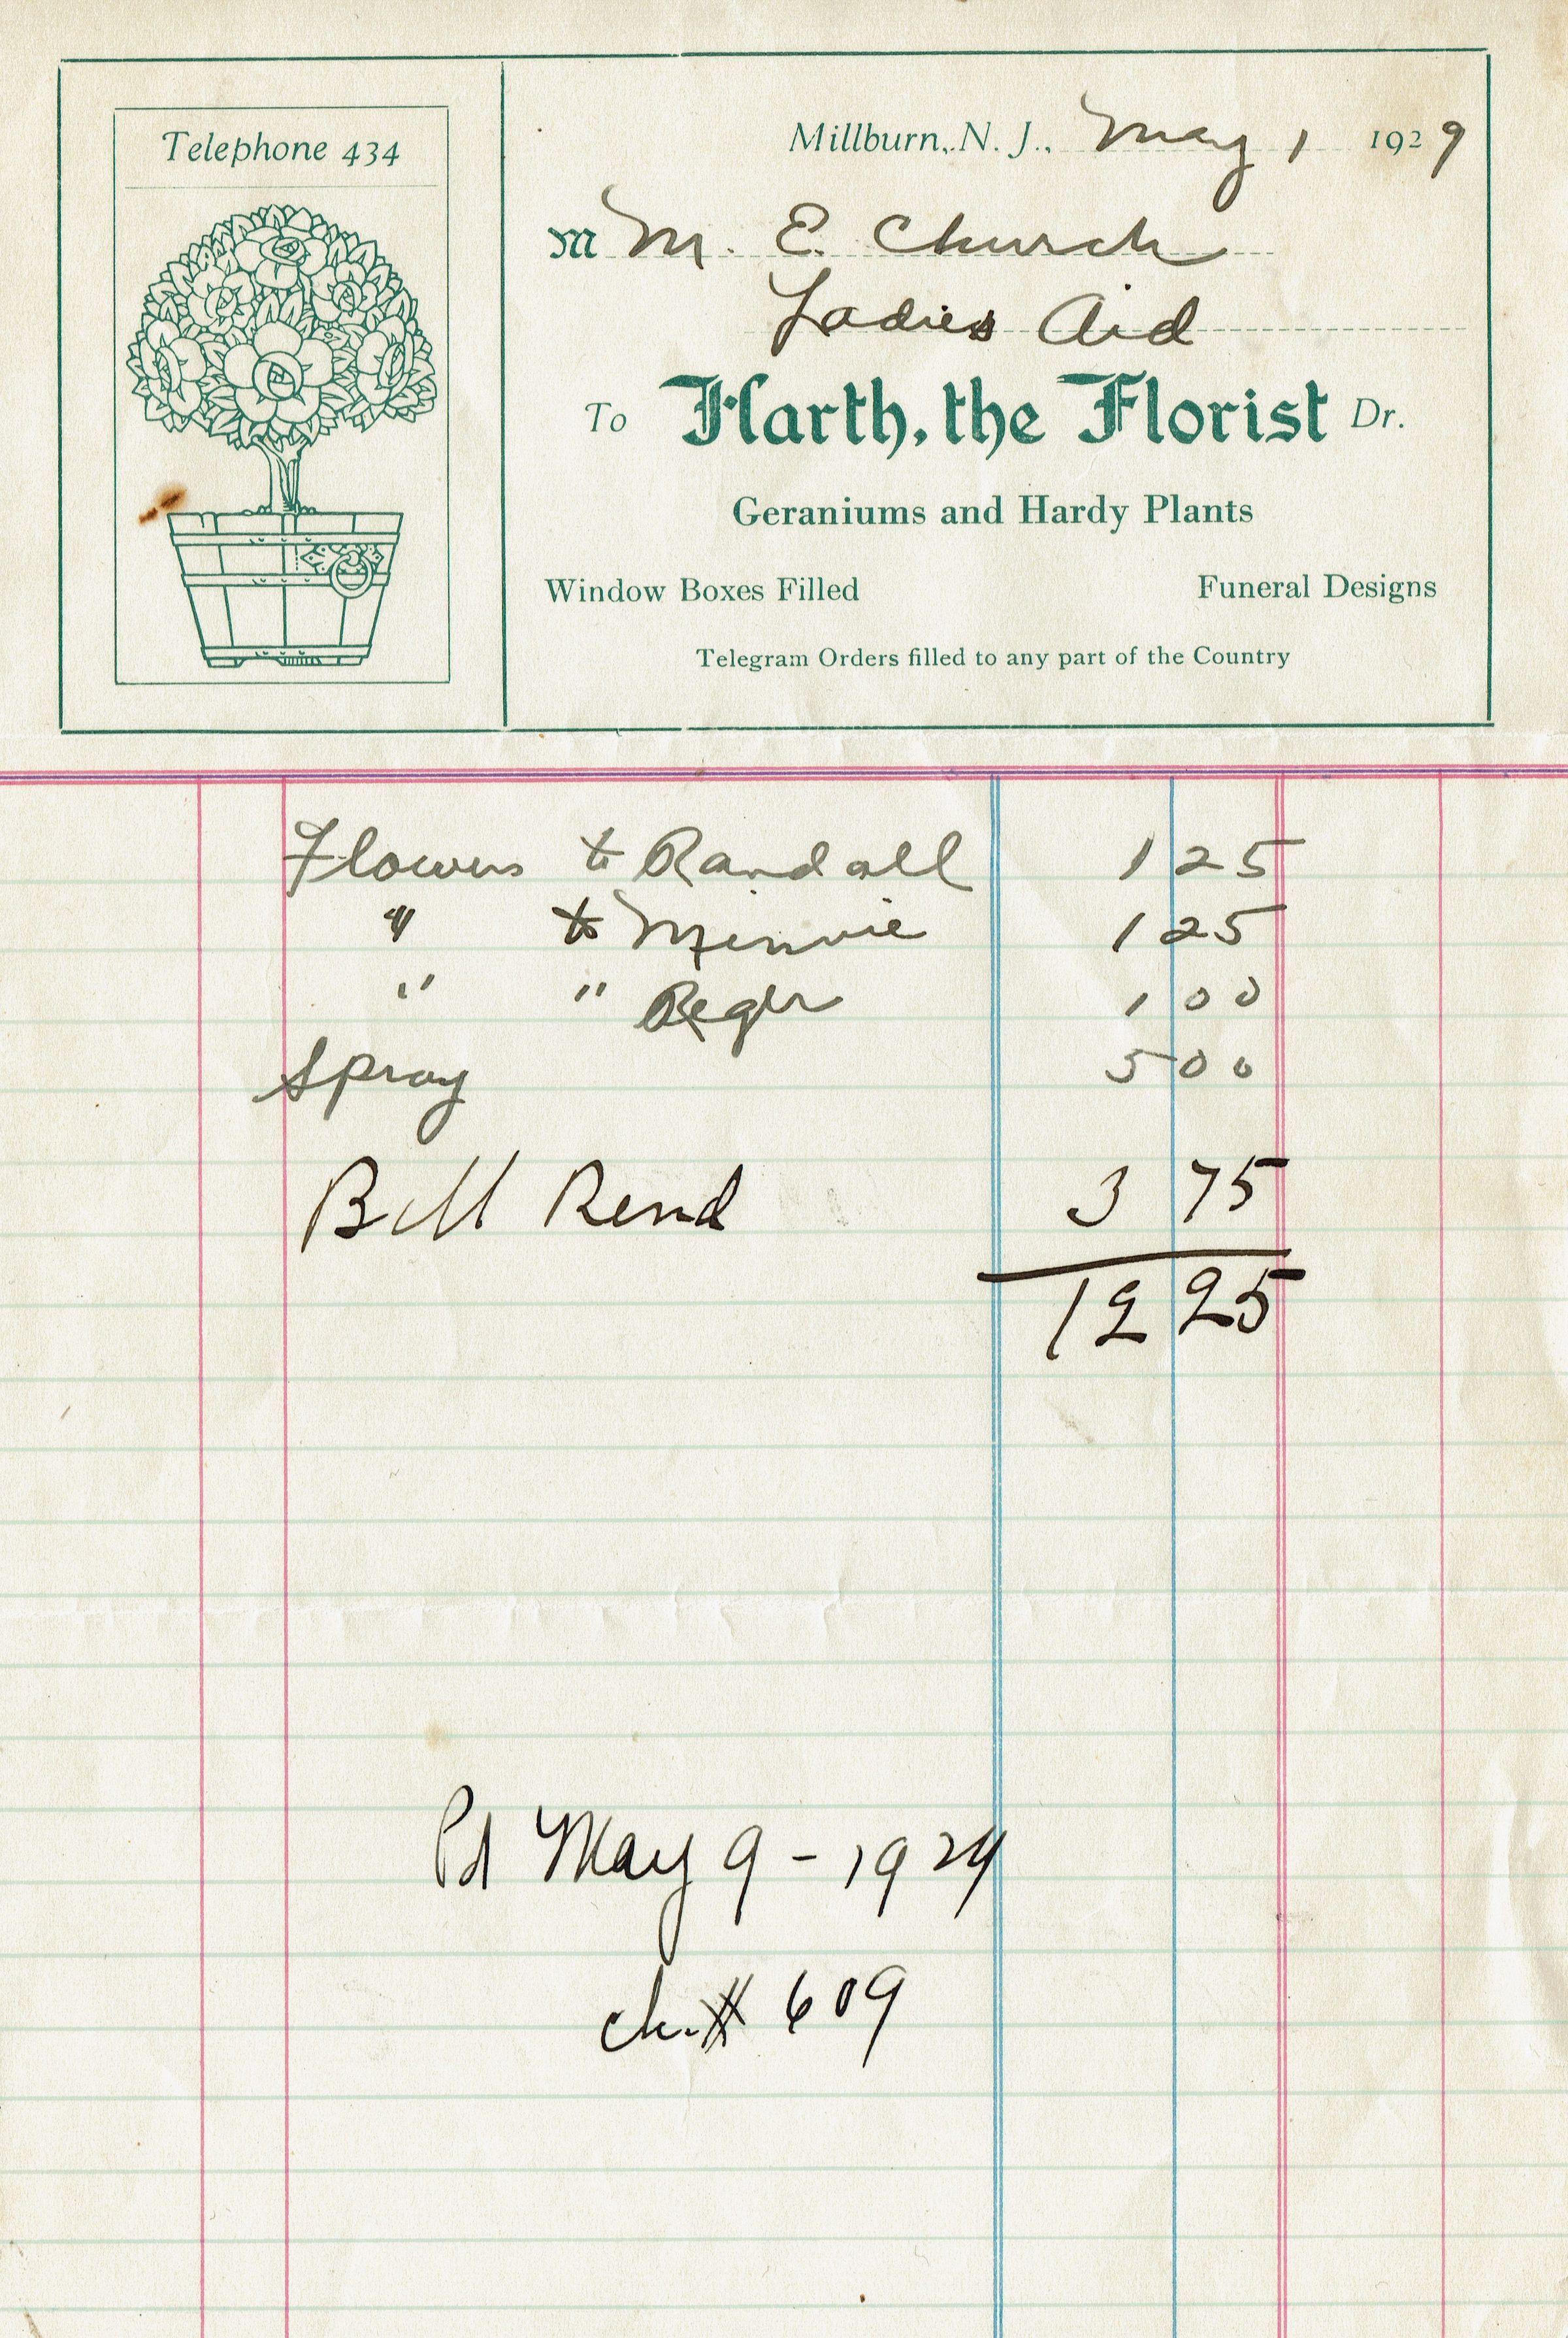 Telephone 434
Millburn, N. J., May 1 1929
M M. E. Church
Ladies Aid
To Harth, the Florist Dr.
Geraniums and Hardy Plants
Window Boxes Filled Funeral Designs
Telegram Orders filled to any part of the Country
Flowers to Randall 1 25
" to Minnie 1 25
" " Reger 1 00
Spray 5 00
Bill Rend 3 75
12 25
Pd May 9 - 1929
ck. # 609